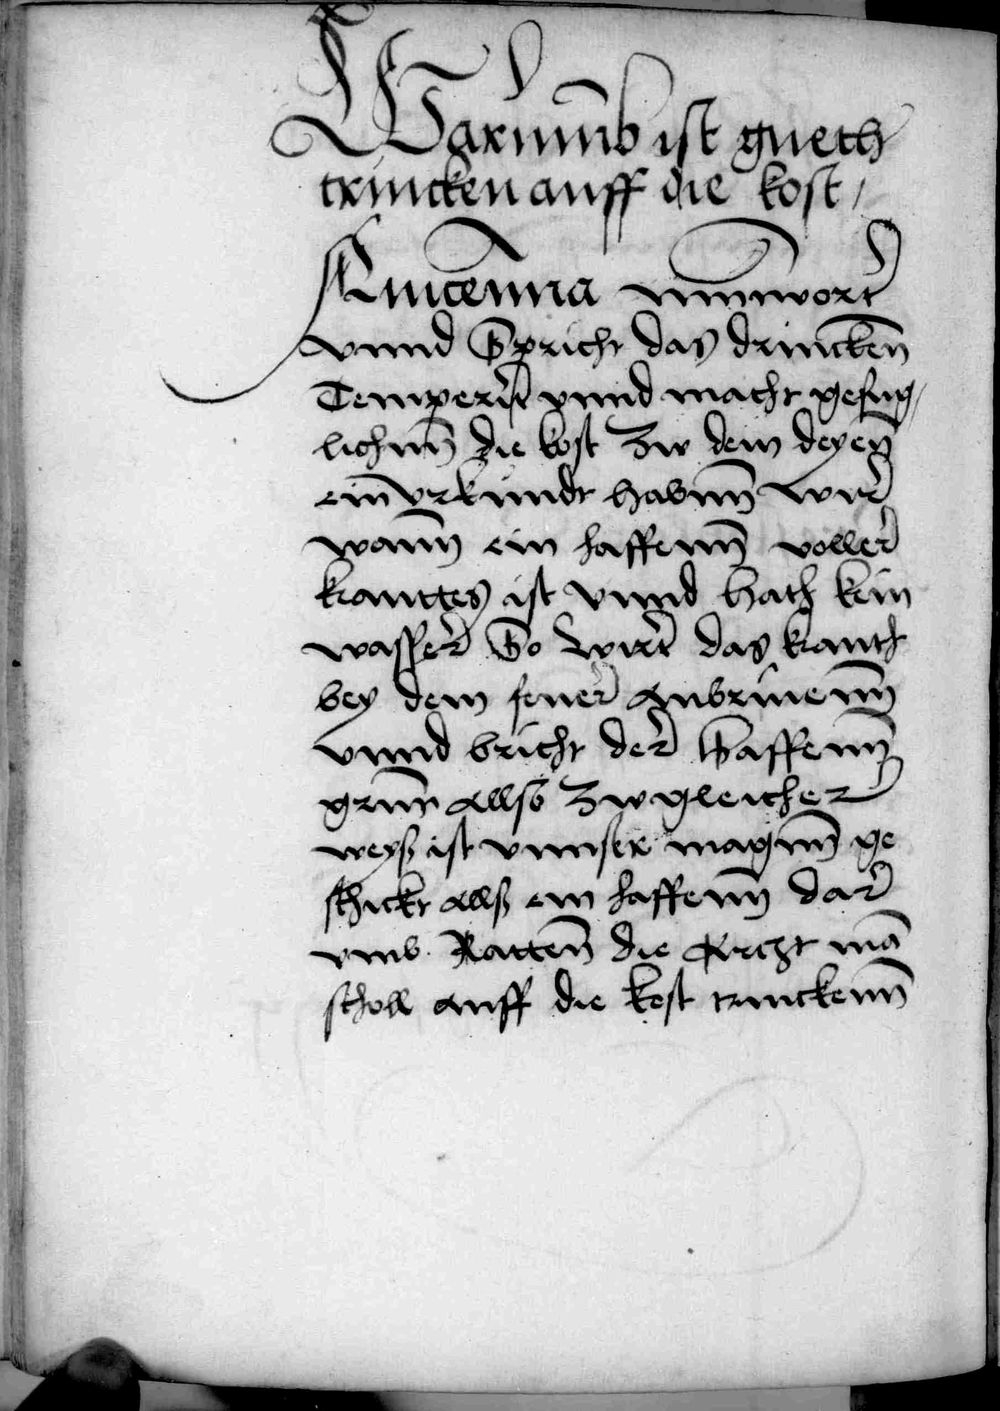 Warumb ist gueth
trincken auff die kost /
Auicenna anntwort
vnnd Spricht das drincken
Temperirt vnnd macht gefug,
lichnn die kost zw dem deyen
ein vrkundt habnn wir
wann ein haffenn voller
krauttes ist vnnd hath kein
wasser So wirt das krauth
bey dem feuer anbrinenn
vnnd bricht der haffenn
grunt allso zw gleicher
weyß ist vnnser magnn ge
schickt allß ein haffenn dar
vmb Ratten die Ertzt man
scholl auff die kost trinckenn